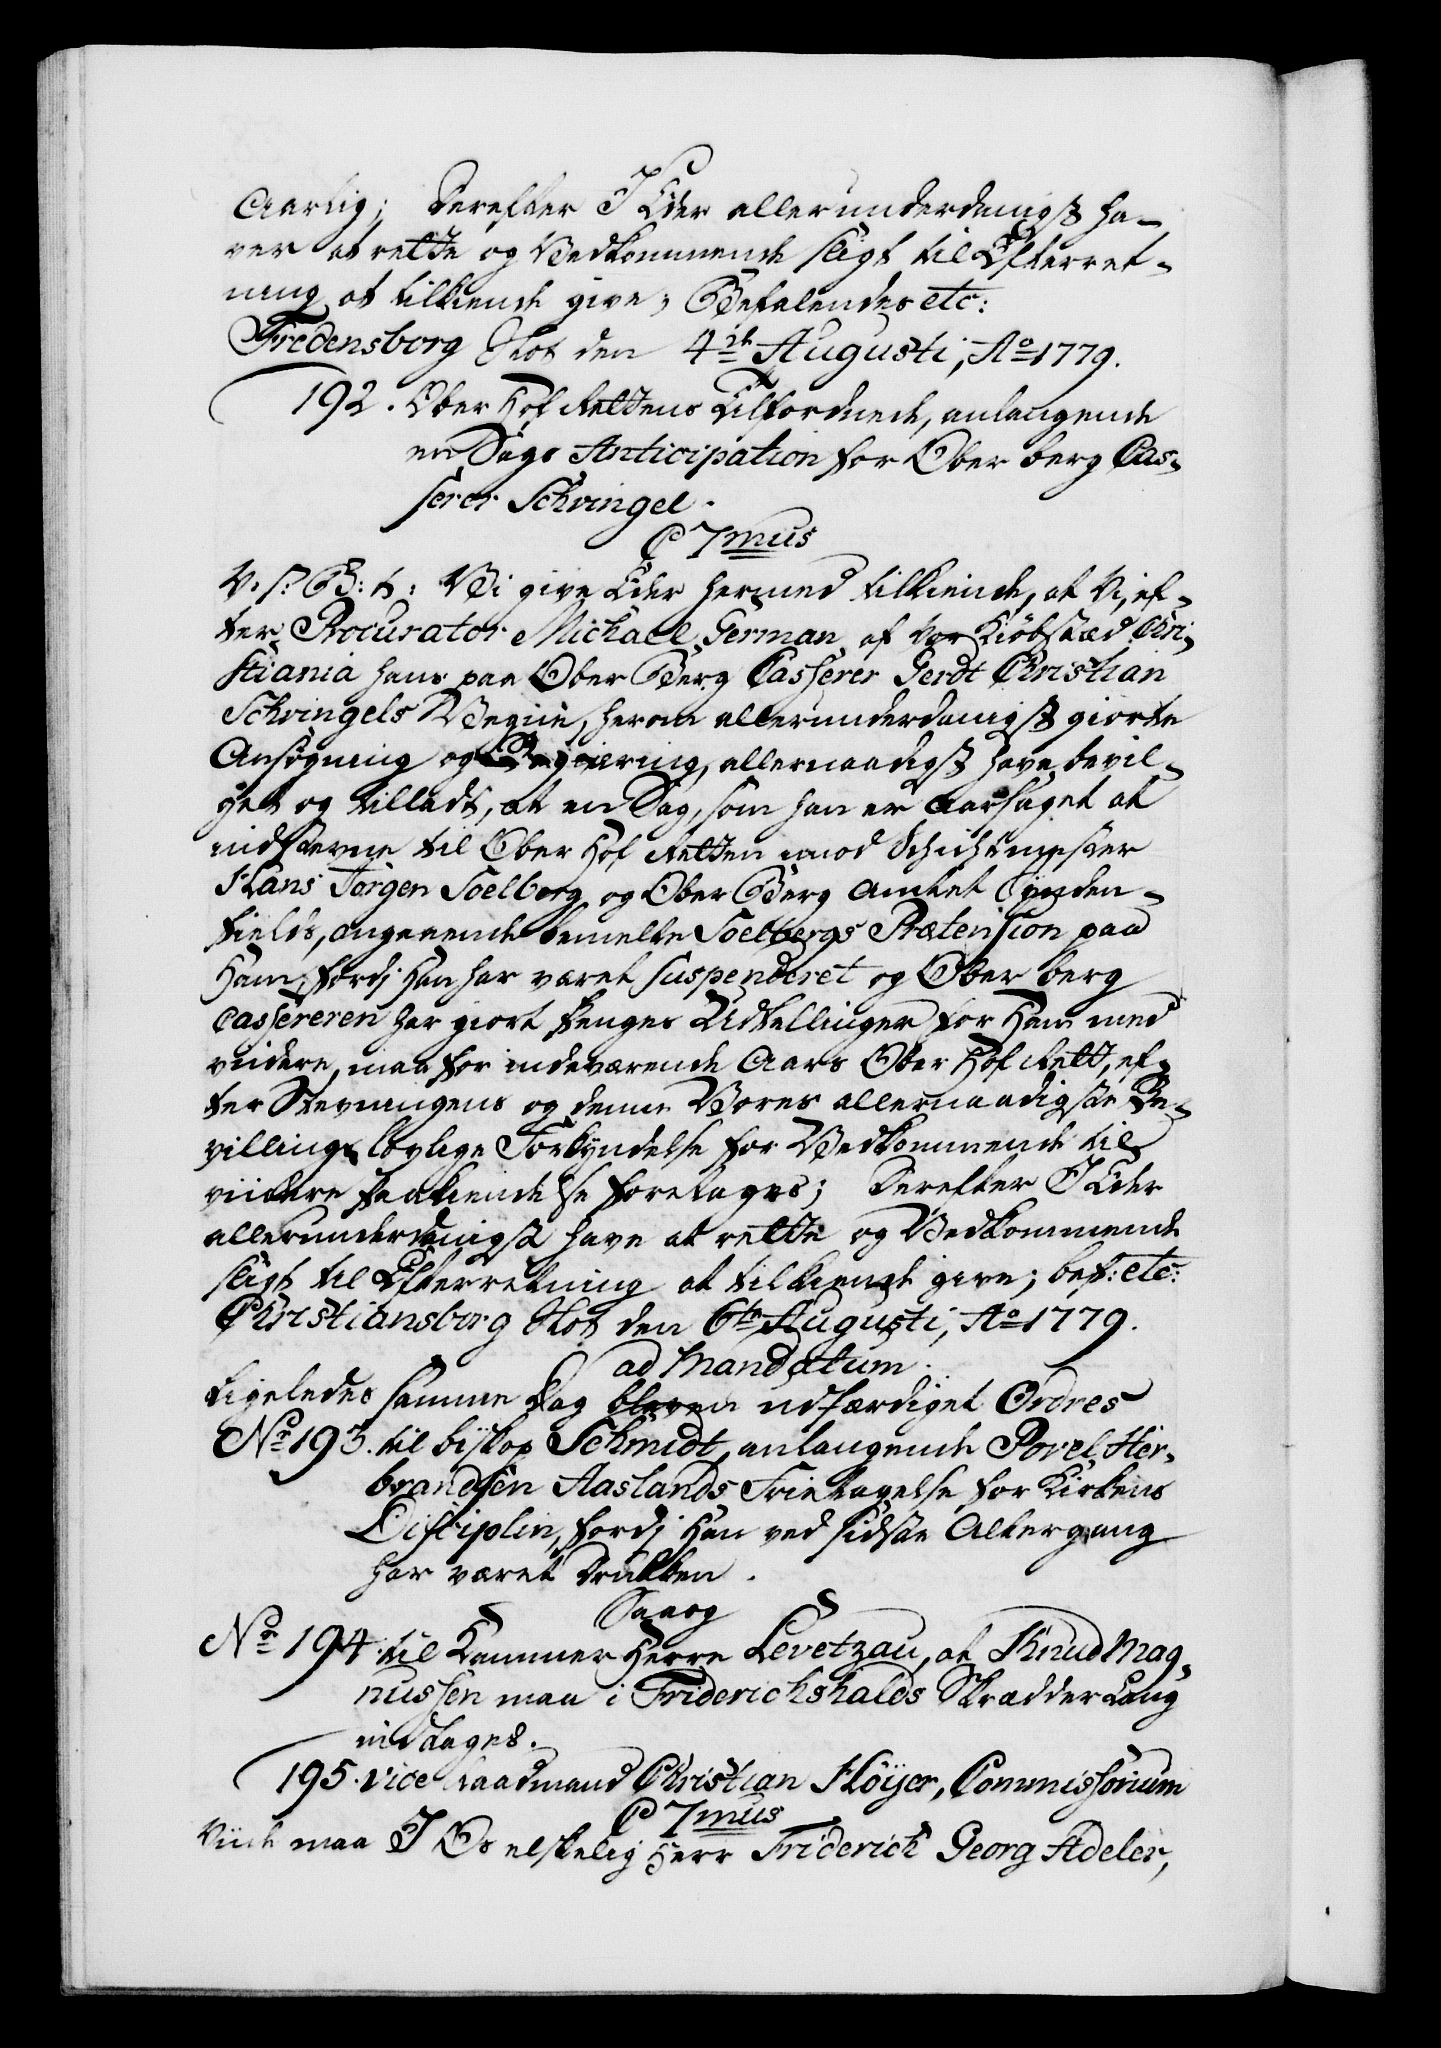 Aarlig; derefter I Eder allerunderdanigst ha-
ver at rette og Vedkommende sligt til Efterret-
ning at tilkiende give; Befalendes etc:
Fredensborg Slot den 4de Augusti, Ao 1779.
192. Ober Hof Rettens Tilfordnede, anlangende
en Sags Anticipation for Ober berg Cas-
serer Schvingel.
C 7mus
V. s. G: t: Vi give Eder hermed tilkiende, at Vi, ef-
ter Procurator Michael German af vor Kiöbstæd Chri-
stiania hans paa Ober Berg Casserer Gerdt Christian
Schvingels Vegne, herom allerunderdanigst giorte
Ansøgning og Begiæring, allernaadigst have bevil-
get og tilladt, at en Sag, som han er aarsaget at
indstevne til Ober Hof Retten imod Schichtmester
Hans Jørgen Soelberg og Ober Berg Amtet Synden-
fields, angaaende bemelte Soelbergs Prætension paa
Ham, fordj Han har været suspenderet og Ober berg
Cassereren har giort Penges Udtellinger for Ham med
videre, maa for indeværende Aars Ober Hof Rett, ef-
ter Stevningens og denne Vores allernaadigste Be-
villings lovlige Forkyndelse for Vedkommende til
viidere Paakiendelse foretages; derefter I Eder
allerunderdanigst have at rette og Vedkommende
sligt til Efterretning at tilkiende give; bef: etc:
Christiansborg Slot den 6te Augusti, Ao 1779.
ad Mandatum.
Ligeledes samme Dag bleven udfærdiget Ordres
No 193. til biskop Schmidt, anlangende Povel Her-
brandsen Aaslands Frietagelse for Kirkens
Disciplin, fordj Han ved sidste Altergang
har været drukken.
Saa og
No 194. til Kammer Herre Levetzau, at Knud Mag-
nussen maa i Friderichshalds Skrædder Laug
indtages.
195. Vice Raadmand Christian Höijer, Commissorium
C 7mus
Viide maa I Os elskelig Herr Friderich Georg Adeler,